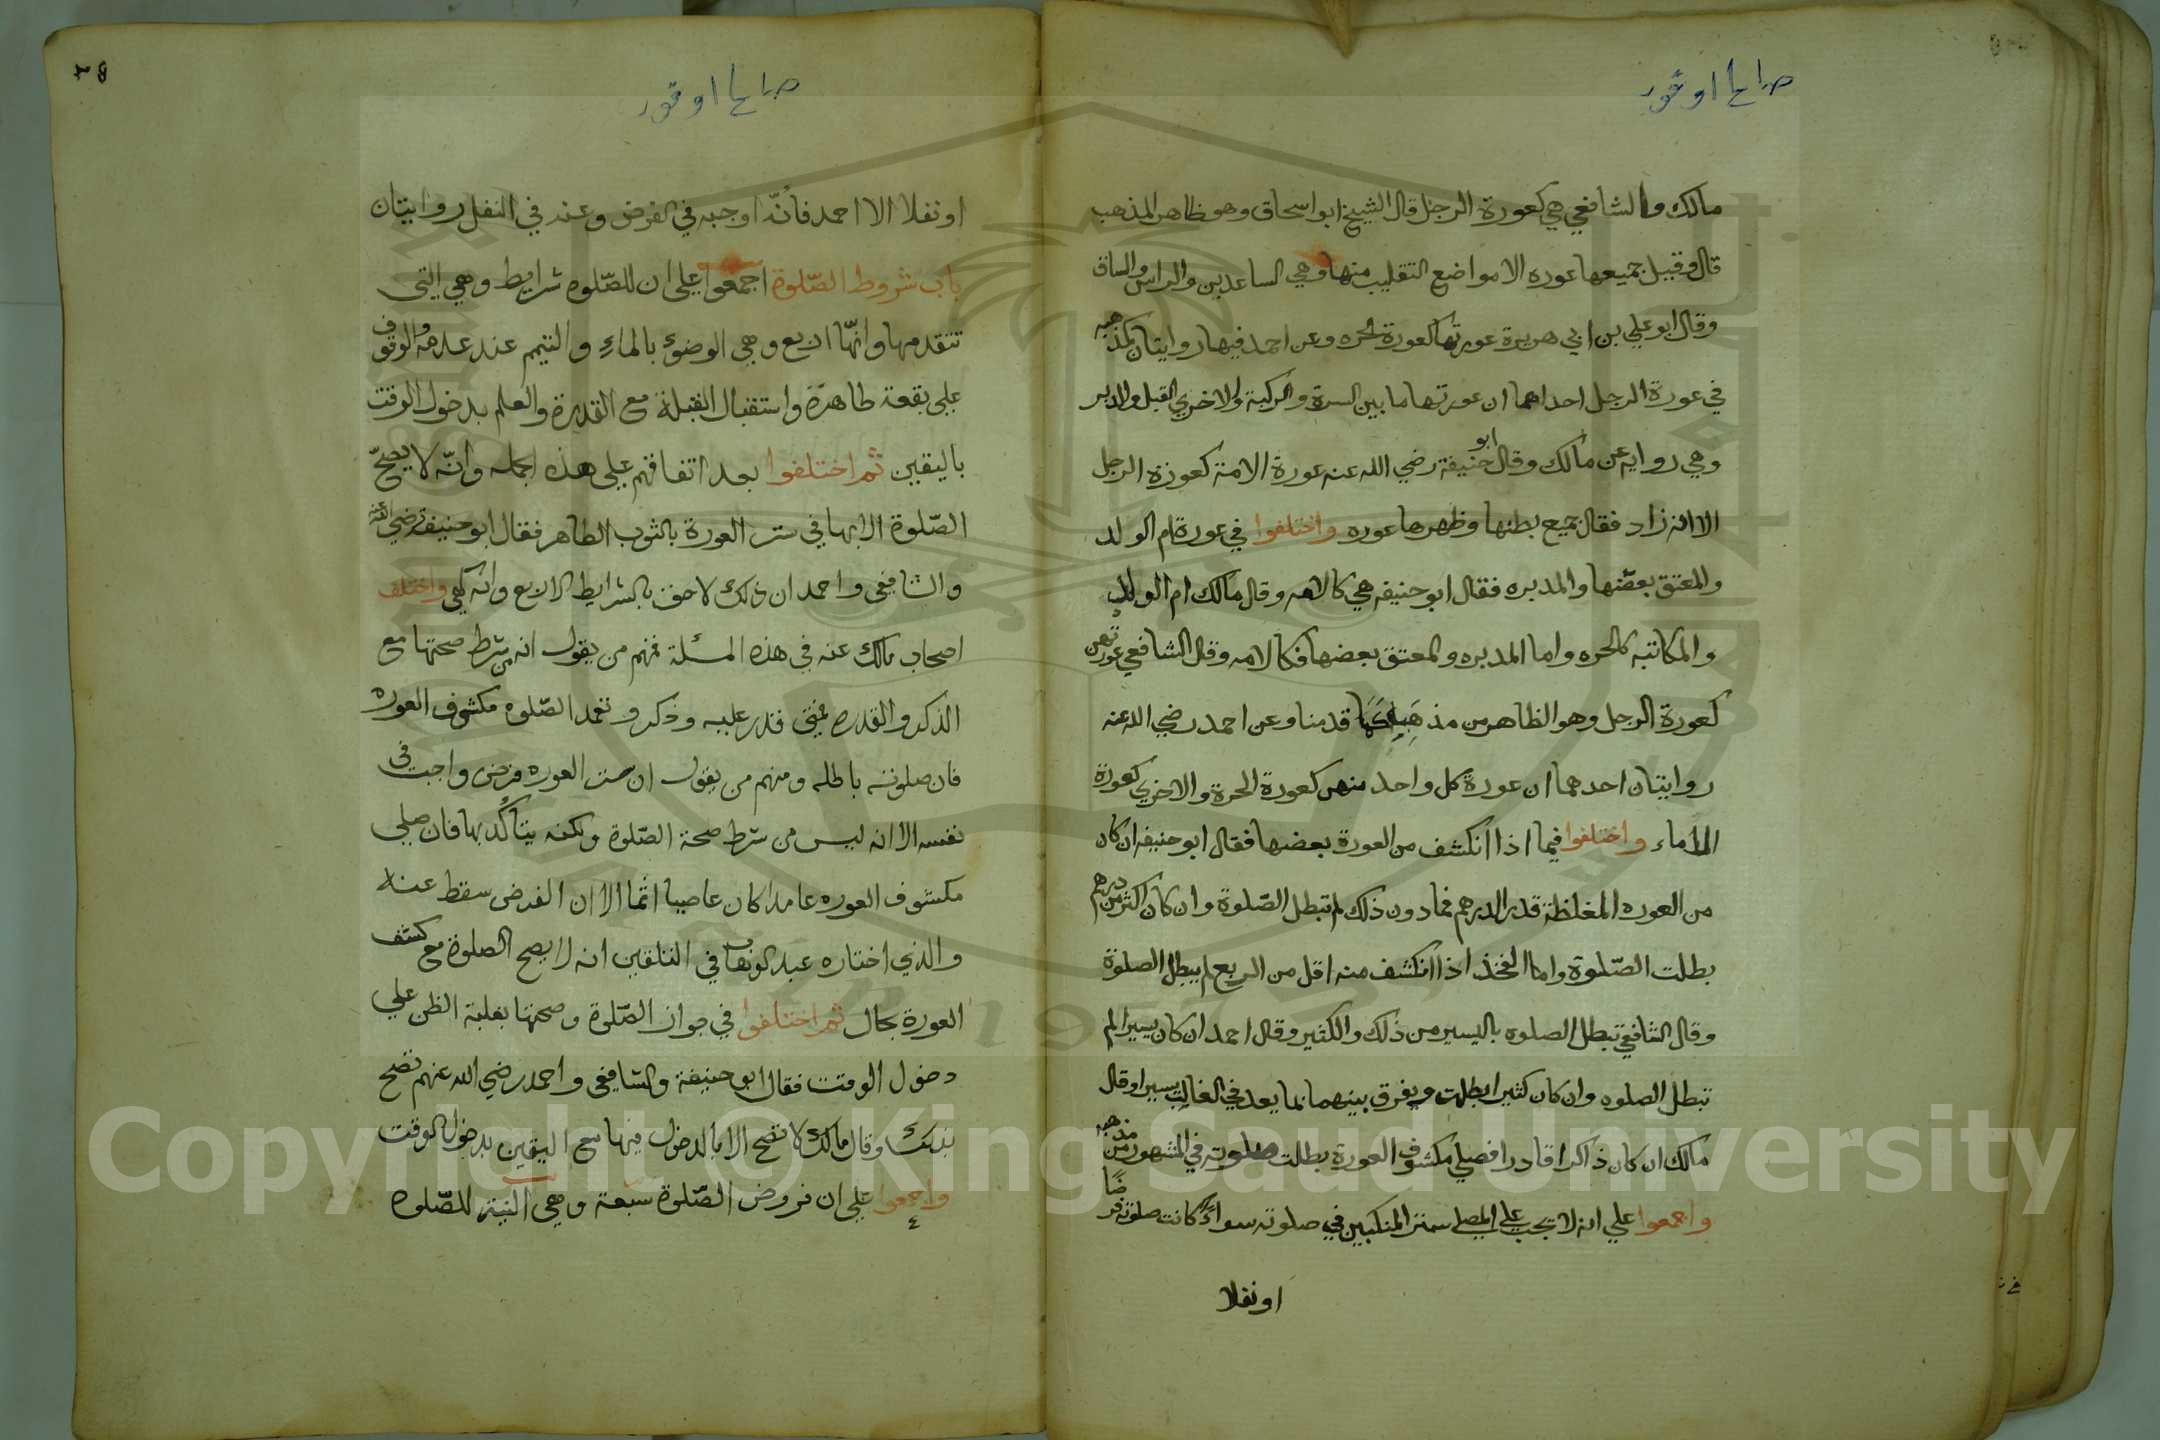 مالك والشافعي هي كعورة الرجل قال الشيخ ابو اسحاق وهو ظاهر المذهب
قال وقيل جميعها عوره الا مواضع التقليب منها وهي الساعدين والراس والساق
وقال ابو علي بن ابي هريرة عورتها كعورة الحره وعن احمد فيها روايتان كمذهبه
في عورة الرجل احداهما ان عورتها ما بين السرة والركبة والاخري القبل والدبر
وهي روايه عن مالك وقال ابو حنيفة رضي الله عنه عورة الامة كعورة الرجل
الا انه زاد فقال جميع بطنها وظهرها عوره واختلفوا في عورة ام الولد
والمعتق بعضها والمدبره فقال ابو حنيفه هي كالامه وقال مالك ام الولد
والمكاتبه كالحره واما المدبره والمعتق بعضها فكالامه وقال الشافعي عورتهن
كعورة الرجل وهو الظاهر من مذهبه كما قدمنا وعن احمد رضي الله عنه
روايتان احدهما ان عورة كل واحد منهن كعورة الحرة والاخري كعورة
الاماء واختلفوا فيما اذا انكشف من العورة بعضها فقال ابو حنيفه ان كان
من العوره المغلظة قدر الدرهم فما دون ذلك لم تبطل الصّلوة وان كان اكثر من درهم
بطلت الصّلوة واما الفخذ اذا انكشف منه اقل من الربع لم يبطل الصلوة
وقال الشافعي تبطل الصلوه باليسير من ذلك والكثير وقال احمد ان كان يسيرا لم
تبطل الصلوه وان كان كثيرا بطلت ويفرق بينهما بما يعد في الغالب يسيرا وقال
مالك ان كان ذاكرا قادرا فصلي مكشوف العورة بطلت صلوته في المشهور من مذهبه
واجمعوا علي انه لا تجب علي المصلي ستر المنكبين في صلوته سواءً كانت صلوته فرضًا
او نفلا
٣٥
او نفلا الا احمد فانّه اوجبه في الفرض وعنه في النفل روايتان
باب شروط الصّلوة اجمعوا علي ان للصّلوه شرايط وهي التي
تتقدمها وانّها اربع وهي الوضوء بالماء والتيمم عند عدمه والوقوف
علي بقعة طاهرة واستقبال القبلة مع القدرة والعلم بدخول الوقت
باليقين ثم اختلفوا بعد اتفاقهم علي هذه الجمله وانّه لا يصحّ
الصّلوة الا بها في ستر العورة بالثوب الطاهر فقال ابو حنيفة رضي الله عنه
والشافعي واحمد ان ذلك لاحق بالشرايط الاربع وانه كهي واختلف
اصحاب مالك عنه في هذه المسئلة فمنهم من يقول انه من شرط صحتها مع
الذكر والقدره فمتي قدر عليه وذكر وتعمد الصّلوه مكشوف العوره
فان صلوته باطله ومنهم من يقول ان ستر العوره فرض واجب في
نفسه الا انه ليس من شرط صحة الصّلوة ولكنه يتأكّد بها فان صلي
مكشوف العوره عامدا كان عاصيا اثما الا ان الفرض سقط عنه
والذي اختاره عبد الوهاب في التلقين انه لا يصح الصلوة مع كشف
العورة بحال ثم اختلفوا في جواز الصّلوة وصحتها بغلبة الظن علي
دخول الوقت فقال ابو حنيفة والشافعي واحمد رضي الله عنهم تصح
بذلك وقال مالك لا تصح الا بالدخول فيها مع اليقين بدخول الوقت
واجمعوا علي ان فروض الصّلوة سبعة وهي النية للصّلوه
Copyright © King Saud University